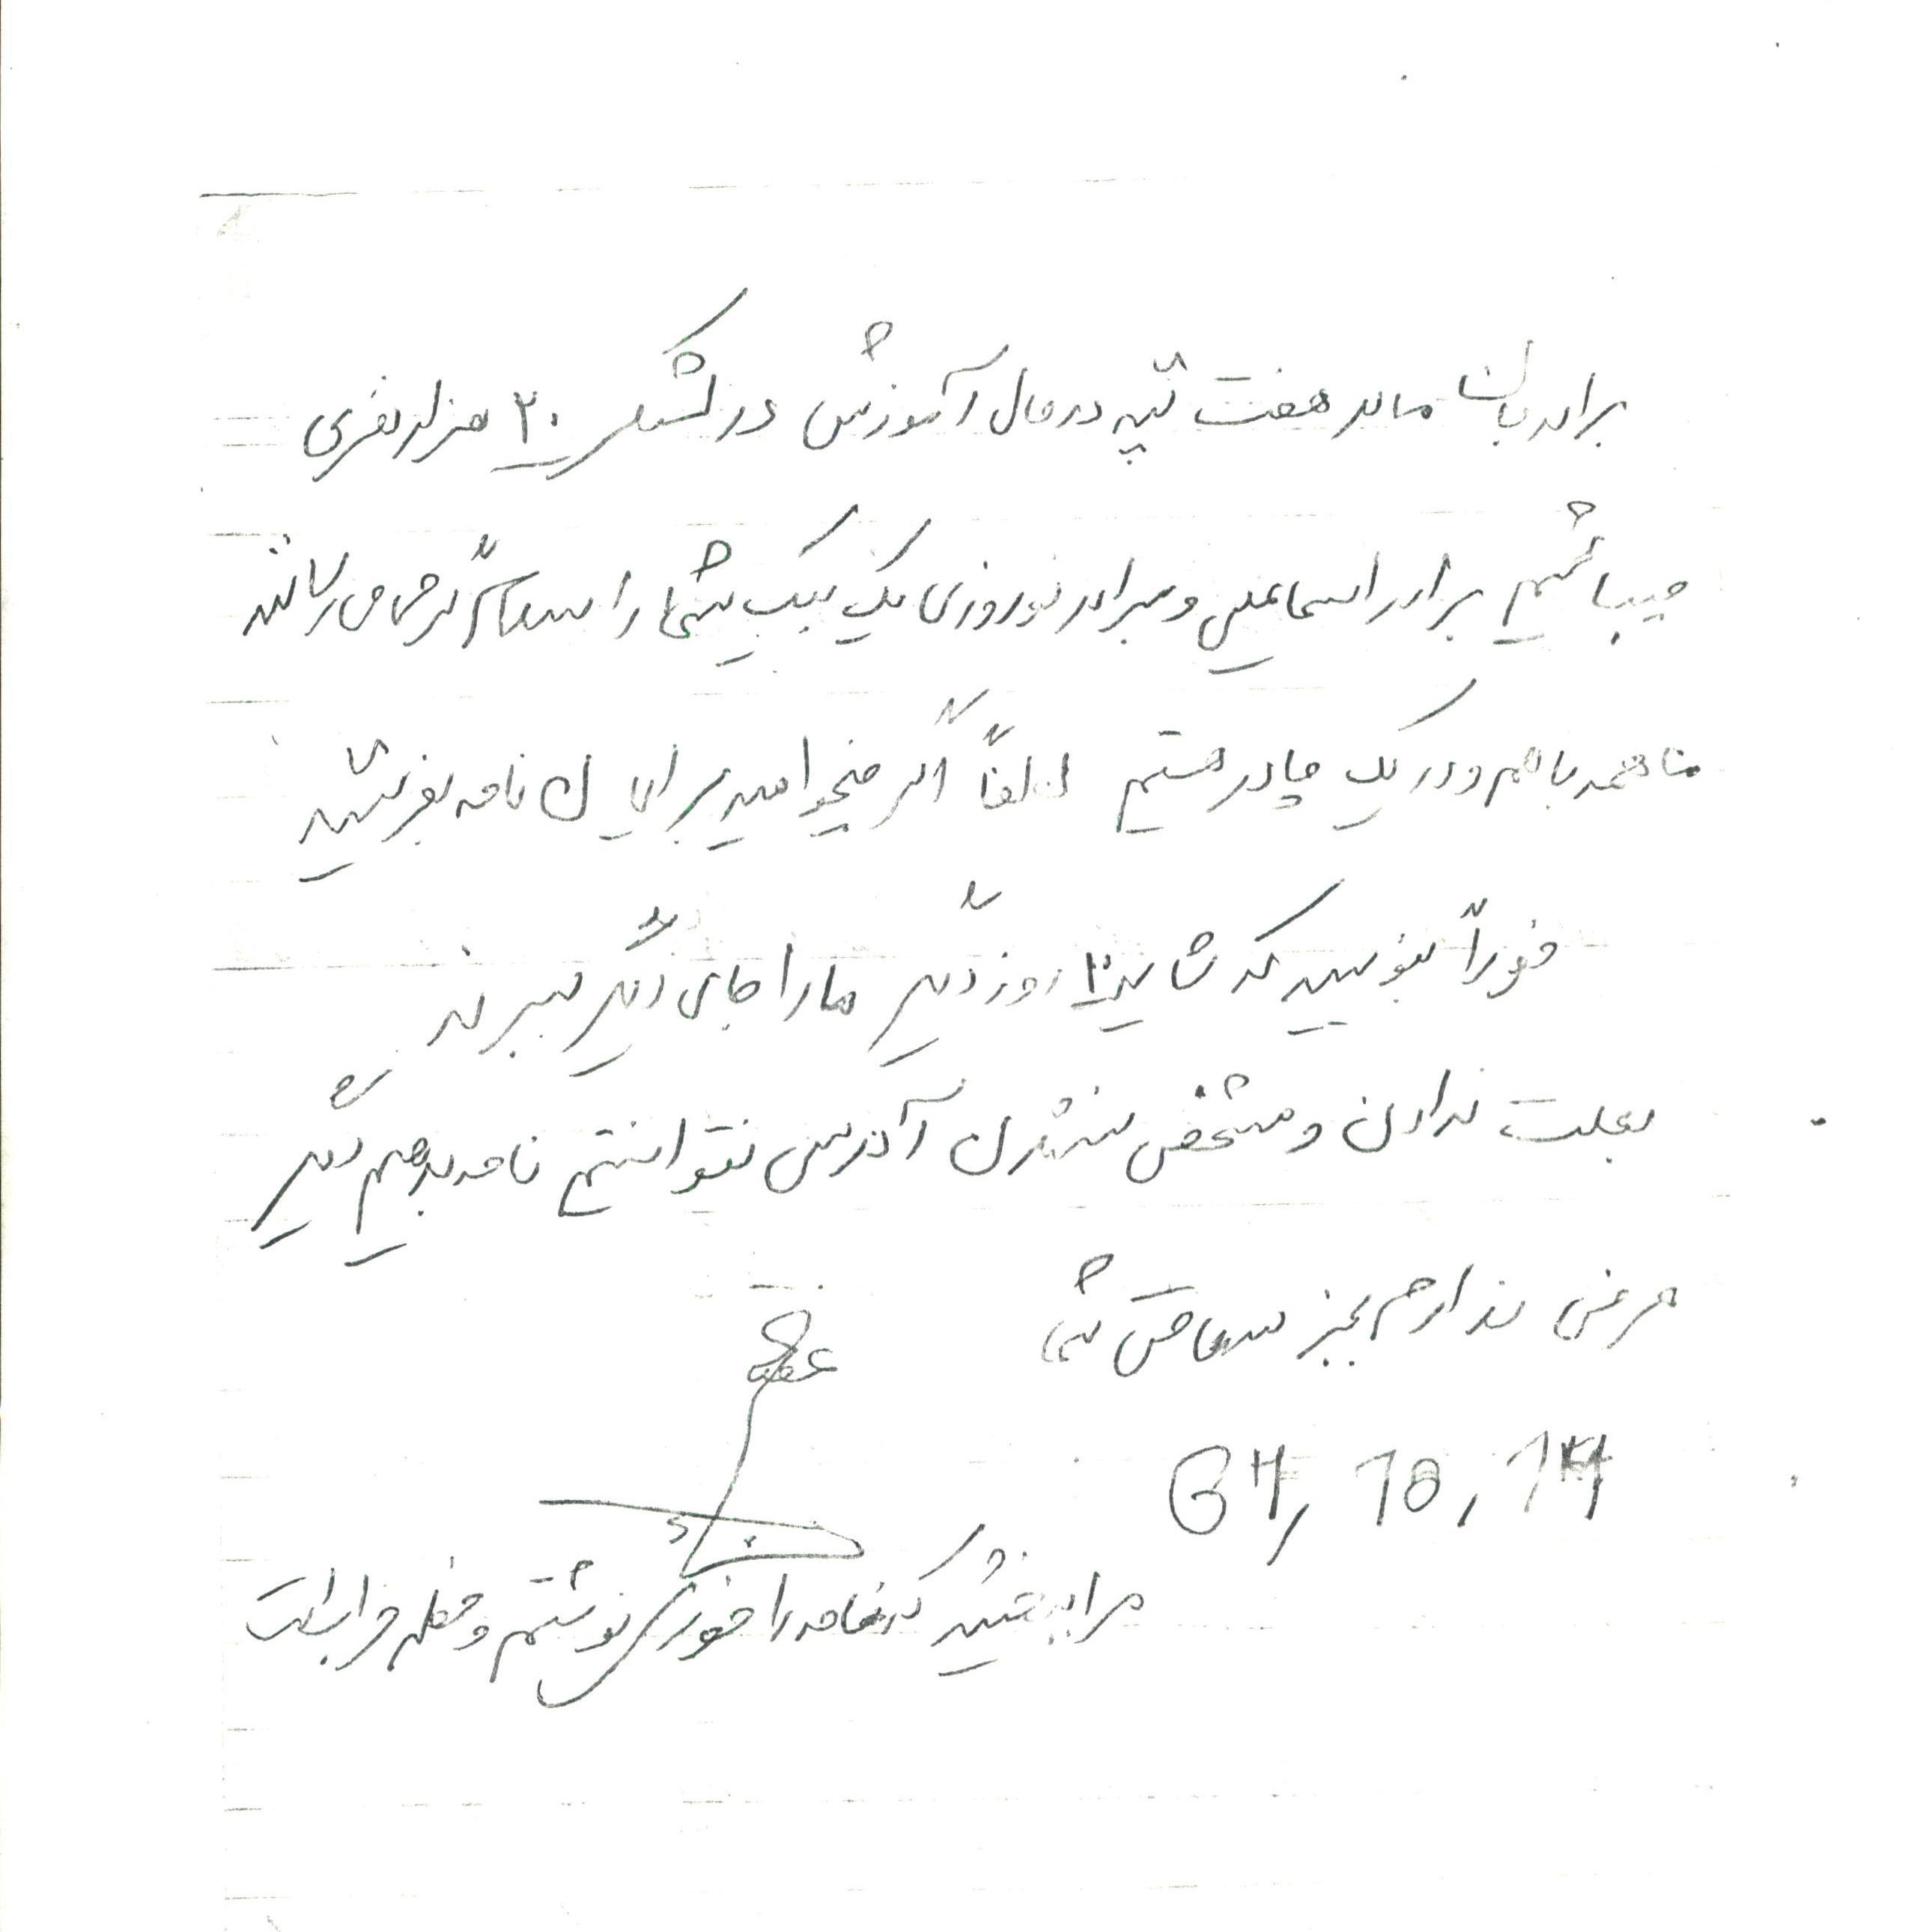 برادرتان ما در هفت تپه در حال آموزش در لشکر ۲۰ هزار نفری
میباشیم برادر اسماعیلی و برادر نوروزی یک یک شما را سلام گرم میرسانند
ما همه با هم و در یک چادر هستیم لطفاً اگر میخواهید برایمان نامه بفرستید
فوراً بنویسید که شاید ۲۰ روز دیگر ما را جای دیگر ببرند
بعلت ندادن و مشخص نشدن آدرس نتوانستم نامه بدهم دیگر
عرضی ندارم بجز سلامتی شما
64, 10, 14
مرا ببخشید که نامه را فوری نوشتم و خطم خراب است